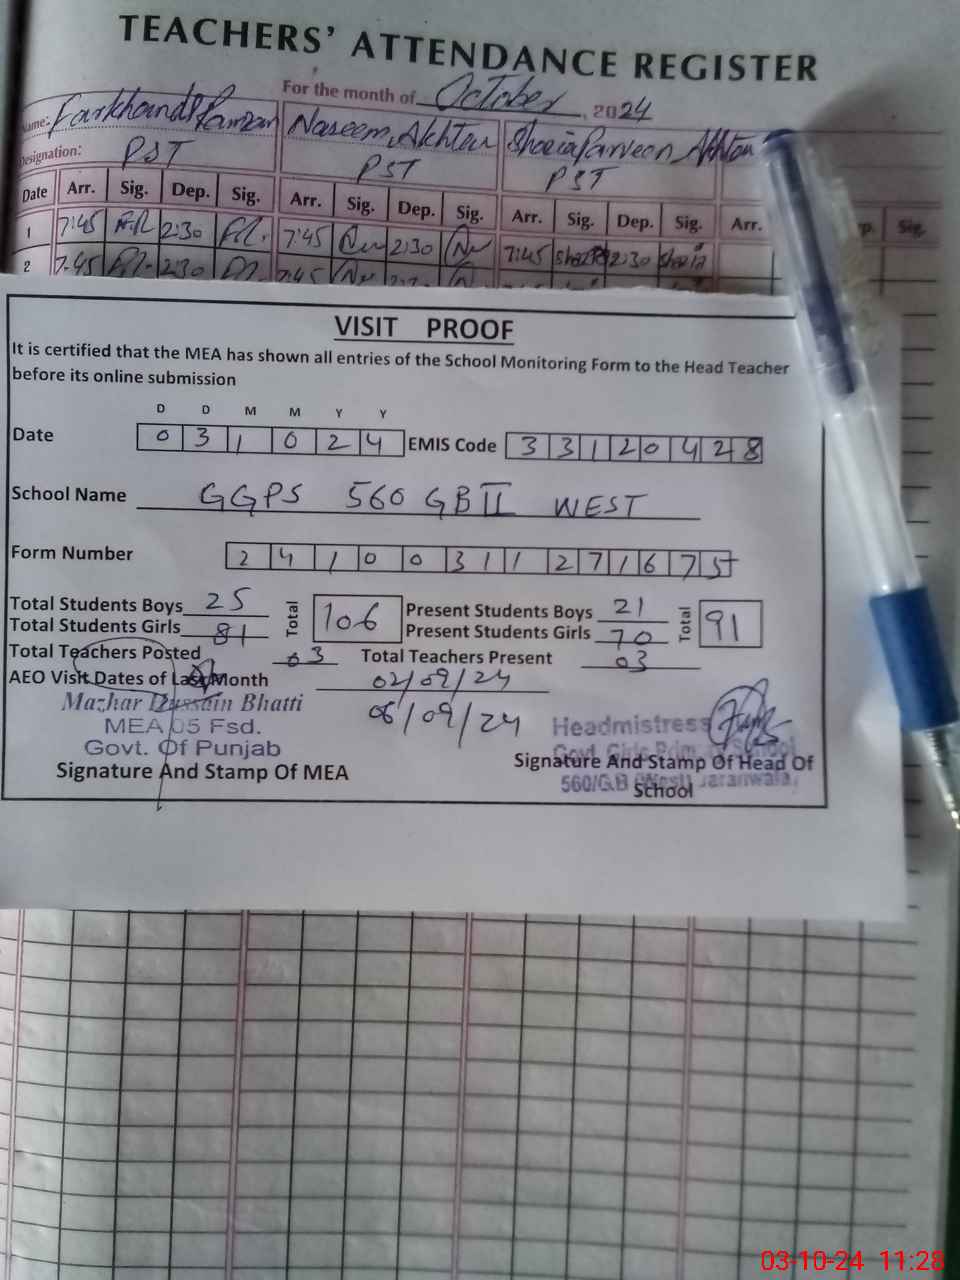 TEACHERS' ATTENDANCE REGISTER
For the month of October, 2024
Name: Farkhanda Ramzan Naseem Akhtar Shazia Parveen Akhtar
Designation: PST PST PST
Date Arr. Sig. Dep. Sig. Arr. Sig. Dep. Sig. Arr. Sig. Dep. Sig. Arr. Sig.
1 7:45 2:30 7:45 2:30 7:45 Shazia 2:30 Shazia
2 7:45 2:30 7:45
VISIT PROOF
It is certified that the MEA has shown all entries of the School Monitoring Form to the Head Teacher
before its online submission
D D M M Y Y
Date 0 3 1 0 2 4 EMIS Code 3 3 1 2 0 4 2 8
School Name GGPS 560 GB II WEST
Form Number 2 4 1 0 0 3 1 1 2 7 1 6 7 5
Total Students Boys 25 Total 106 Present Students Boys 21 Total 91
Total Students Girls 81 Present Students Girls 70
Total Teachers Posted 03 Total Teachers Present 03
AEO Visit Dates of Last Month 02/09/24
06/09/24
Mazhar Hussain Bhatti
MEA 05 Fsd.
Govt. Of Punjab
Signature And Stamp Of MEA
Headmistress
Govt. Girls Primary School
560/G.B (West) Jaranwala.
Signature And Stamp Of Head Of
School
03-10-24 11:28